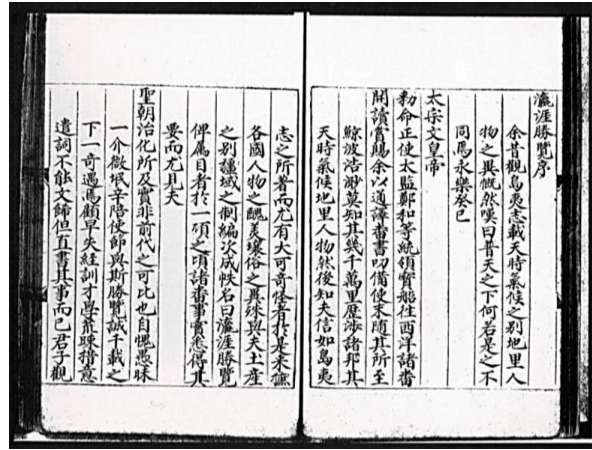 瀛涯勝覽序
余昔觀島夷志載天時氣候之別地里人
物之異慨然嘆曰普天之下何若是之不
同焉永樂癸巳
太宗文皇帝
勑命正使太監鄭和等統領寶船往西洋諸番
開讀賞賜余以通譯番書叨備使末隨其所至
鯨波浩渺莫知其幾千萬里歷涉諸邦其
天時氣候地里人物然後知夫信如島夷
志之所著而尤有大可奇怪者於是采摭
各國人物之醜美壤俗之異殊與夫土産
之別疆域之制編次成帙名曰瀛涯勝覽
俾属目者於一頃之頃諸番事實悉得其
要而尤見夫
聖朝治化所及實非前代之可比也自愧愚昧
一介微氓辛陪使節與斯勝覽誠千載之
下一奇遇焉顧早失經訓才學荒疎措意
遣詞不能文飾但直書其事而已君子觀